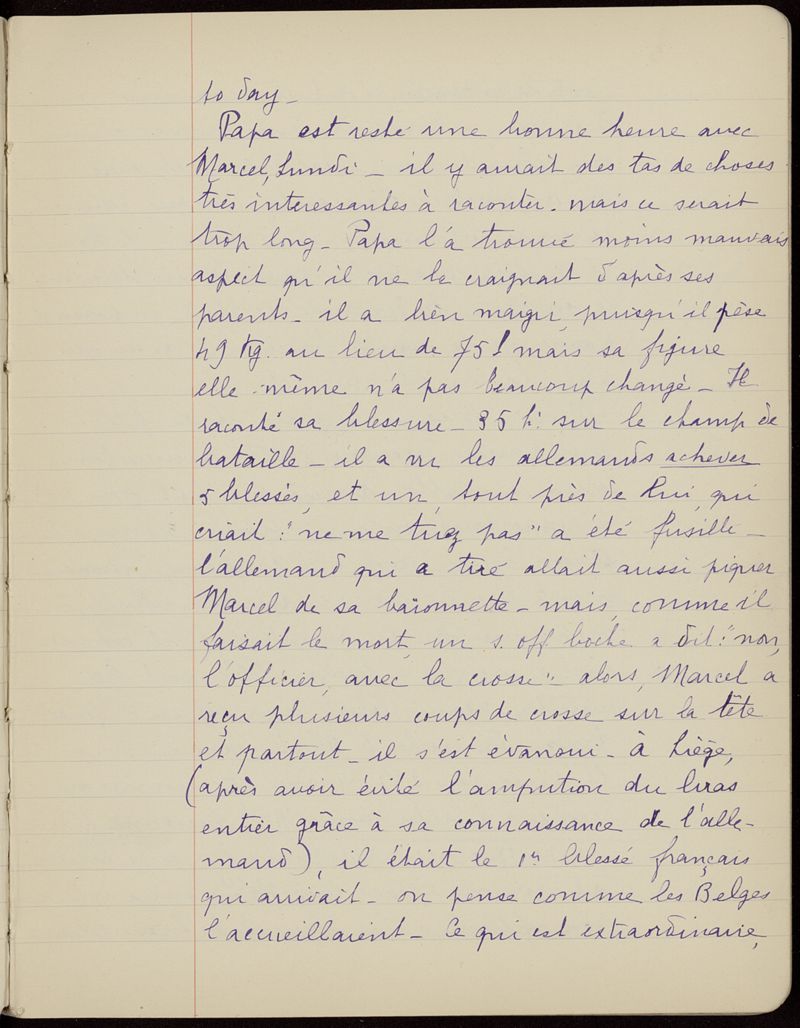 to day -
Papa est resté une bonne heure avec
Marcel, Lundi - il y aurait des tas de choses
très interessantes à raconter. mais ce serait
trop long - Papa l'a trouvé moins mauvais
aspect qu'il ne le craignait d'après ses
parents - il a bien maigri, puisqu'il pèse
49 kg. au lieu de 75 ! mais sa figure
elle-même n'a pas beaucoup changé - Il
raconté sa blessure - 35 h. sur le champ de
bataille - il a vu les allemands achever
5 blessés, et un, tout près de lui, qui
criait : "ne me tuez pas" a été fusillé -
l'allemand qui a tiré allait aussi piquer
Marcel de sa baïonnette - mais, comme il
faisait le mort, un s. off boche a dit : "non,
l'officier, avec la crosse" - alors, Marcel a
reçu plusieurs coups de crosse sur la tête
et partout - il s'est évanoui - à Liège,
(après avoir évité l'ampution du bras
entier grâce à sa connaissance de l'alle-
mand), il était le 1er blessé français
qui arrivait - on pense comme les Belges
l'accueillaient - Ce qui est extraordinaire,